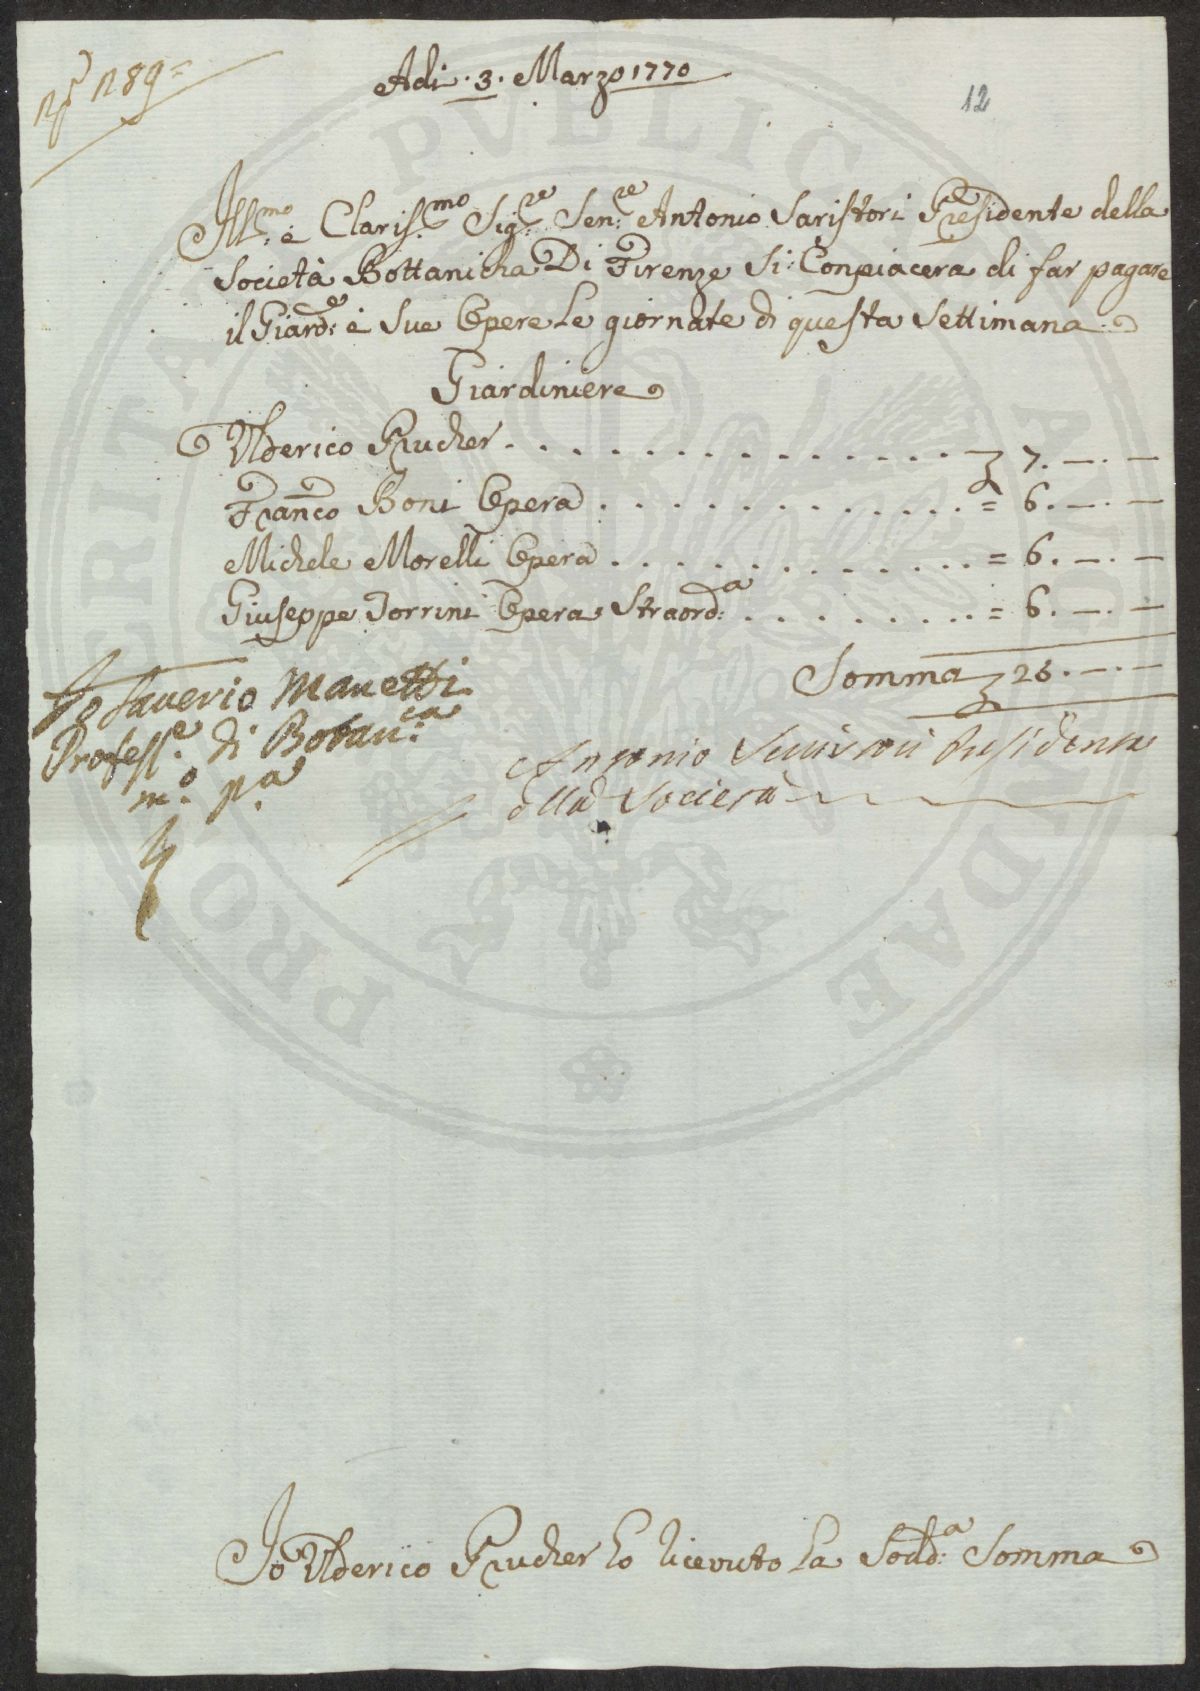 N.º 189=
Adi. 3. Marzo 1770
12
Ill.mo e Claris.mo Sig.re Sen.re Antonio Saristori Presidente della
Società Bottanicha Di Firenze Si: Conpiacera di far pagare
il Giard.e è Sue Opere Le giornate di questa Settimana
Giardiniere
Ulderico Prucher . . . . . . . . . . . . . . 7. — . —
Franco Boni Opera . . . . . . . . . . . . . = 6. — . —
Michele Morelli Opera . . . . . . . . . . . . . = 6. — . —
Giuseppe Torrini Opera Straord:a . . . . . . . . = 6. — . —
Somma 25. — . —
Io Saverio Manetti
Profess.e di Botan.ca
m.o p.a
Antonio Presidente
della Società
Io Ulderico Prucher ho ricevuto la Sodd:a Somma
PROSPERITATI PVBLICAE AVGENDAE